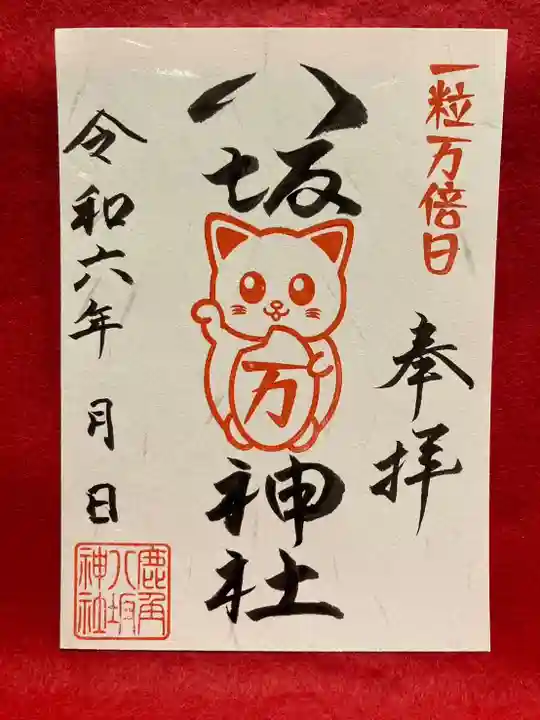 一粒万倍日
奉拝
八坂神社
万
令和六年 月 日
鹿角
八坂
神社